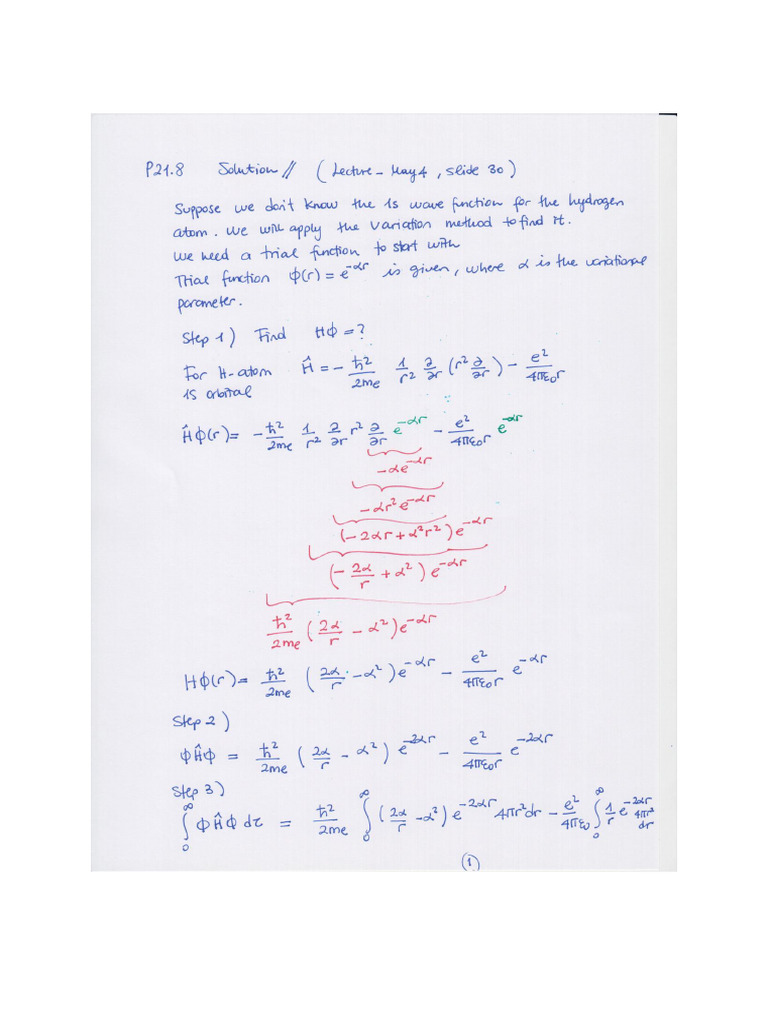 P21.8 Solution // (Lecture - May 4, slide 30)
Suppose we don't know the 1s wave function for the hydrogen
atom. We will apply the variation method to find it.
We need a trial function to start with
Trial function ϕ(r) = e^{-αr} is given, where α is the variational
parameter.
Step 1) Find Hϕ = ?
For H-atom Ĥ = - ħ²/2me 1/r² ∂/∂r (r² ∂/∂r) - e²/4πε₀r
1S orbital
Ĥϕ(r) = - ħ²/2me 1/r² ∂/∂r r² ∂/∂r e^{-αr} - e²/4πε₀r e^{-αr}
-αe^{-αr}
-αr²e^{-αr}
(-2αr + α²r²) e^{-αr}
(-2α/r + α²) e^{-αr}
ħ²/2me (2α/r - α²) e^{-αr}
Hϕ(r) = ħ²/2me (2α/r - α²) e^{-αr} - e²/4πε₀r e^{-αr}
Step 2)
ϕĤϕ = ħ²/2me (2α/r - α²) e^{-2αr} - e²/4πε₀r e^{-2αr}
Step 3)
∫₀^∞ ϕĤϕ dτ = ħ²/2me ∫₀^∞ (2α/r - α²) e^{-2αr} 4πr²dr - e²/4πε₀ ∫₀^∞ 1/r e^{-2αr} 4πr² dr
1